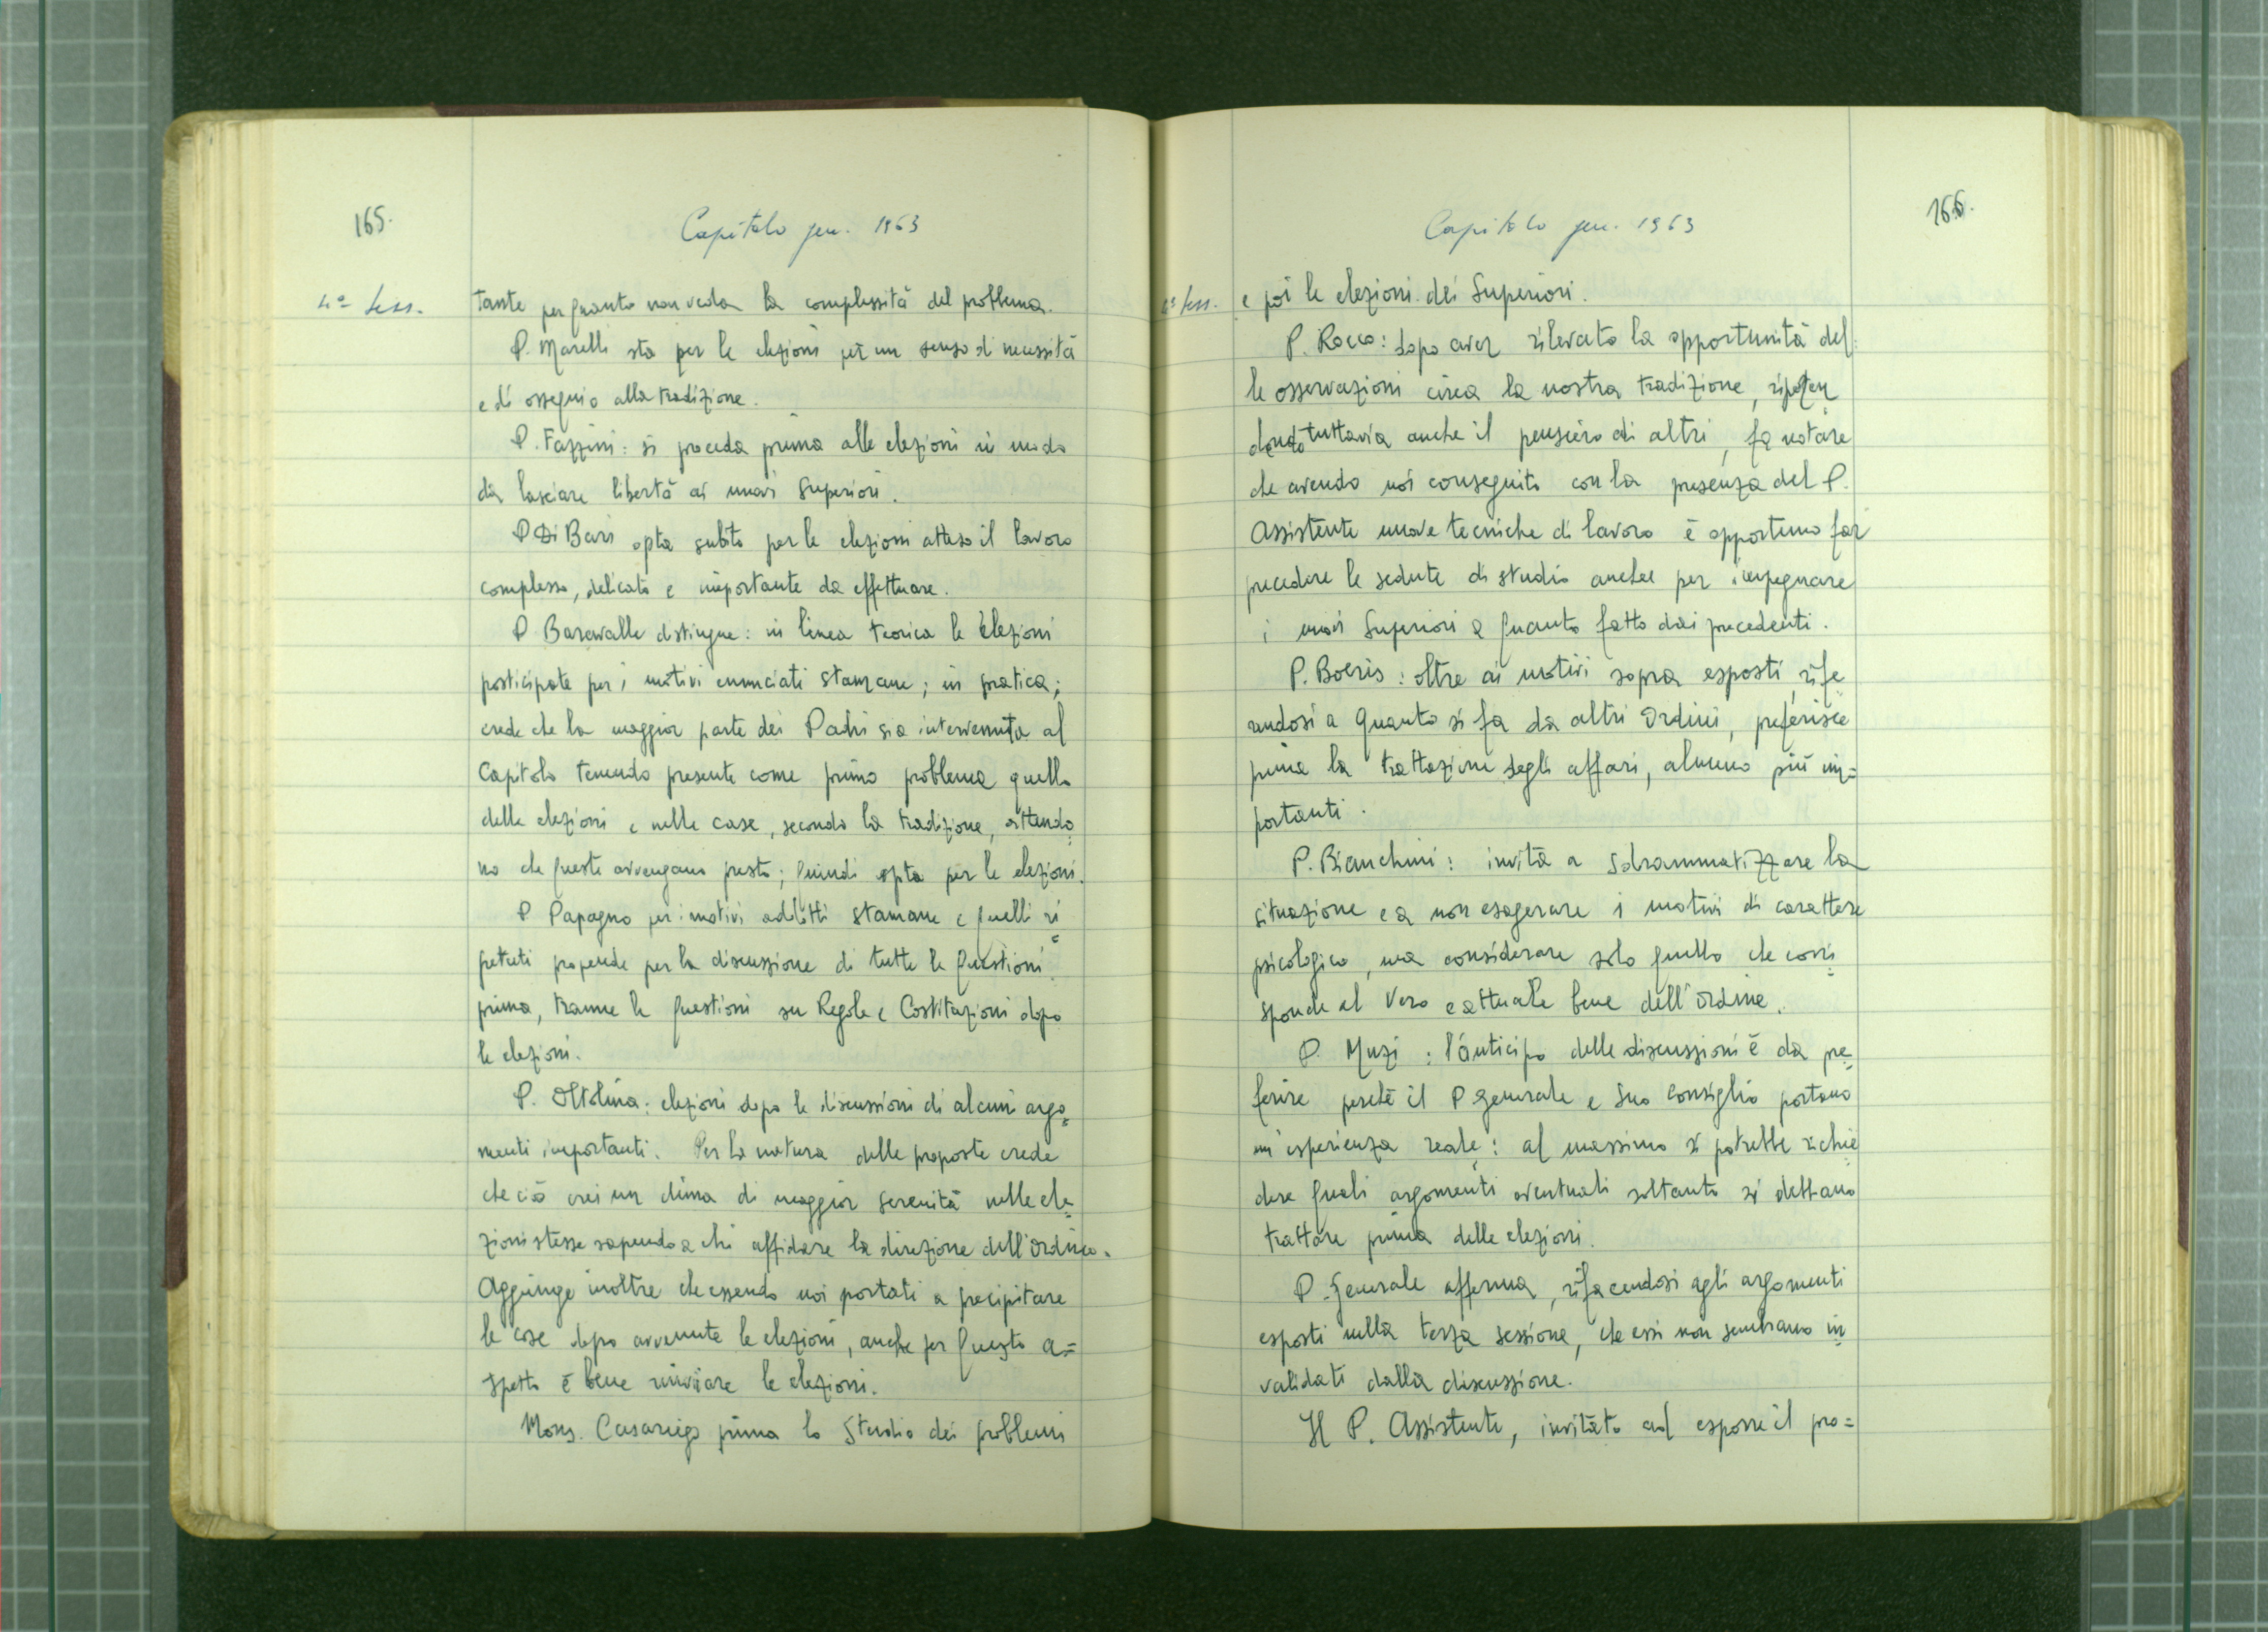 165.
Capitolo gen. 1963
4ª Sess.
tante per quanto non veda la complessità del problema.
P. Marelli sta per le elezioni per un senso di necessità
e di ossequio alla tradizione.
P. Fazzini: si proceda prima alle elezioni in modo
da lasciare libertà ai nuovi Superiori.
P Di Bari opta subito per le elezioni atteso il lavoro
complesso, delicato e importante da effettuare.
P Baravalle distingue: in linea teorica le elezioni
posticipate per i motivi enunciati stamane; in pratica;
crede che la maggior parte dei Padri sia intervenuta al
Capitolo tenendo presente come primo problema quello
delle elezioni e nelle case, secondo la tradizione, attendo=
no che queste avvengano presto; quindi opta per le elezioni.
P Papagno per i motivi addotti stamane e quelli ri=
petuti propende per la discussione di tutte le questioni
prima, tranne le questioni su Regole e Costituzioni dopo
le elezioni.
P. Ottolina: elezioni dopo le discussioni di alcuni argo=
menti importanti. Per la natura delle proposte crede
che ciò crei un clima di maggior serenità nelle ele=
zioni stesse sapendo a chi affidare la direzione dell'Ordine.
Aggiunge inoltre che essendo noi portati a precipitare
le cose dopo avvenute le elezioni, anche per questo a=
spetto è bene rinviare le elezioni.
Mons. Casariego prima lo Studio dei problemi
Capitolo gen. 1963
166.
4ª Sess.
e poi le elezioni dei Superiori.
P. Rocco: dopo aver rilevato la opportunità del=
le osservazioni circa la nostra tradizione,
tuttavia anche il pensiero di altri, fa notare
che avendo noi conseguito con la presenza del P.
Assistente nuove tecniche di lavoro è opportuno far
precedere le sedute di studio anche per impegnare
i nuovi Superiori a quanto fatto dai precedenti.
P. Boeris: oltre ai motivi sopra esposti, rife
rendosi a quanto si fa da altri Ordini, preferisce
prima la trattazione degli affari, almeno più im=
portanti.
P. Bianchini: invita a sdrammatizzare la
situazione e a non esagerare i motivi di carattere
psicologico, ma considerare solo quello che corri=
sponde al vero e attuale bene dell'Ordine.
P. Muzi: l'anticipo delle discussioni è da pre=
ferire perchè il P Generale e Suo Consiglio portano
un'esperienza reale: al massimo si potrebbe richie=
dere quali argomenti eventuali soltanto si debbano
trattare prima delle elezioni.
P. Generale afferma, rifacendosi agli argomenti
esposti nella terza sessione, che essi non sembrano in=
validati dalla discussione.
Il P. Assistente, invitato ad esporre il pro=